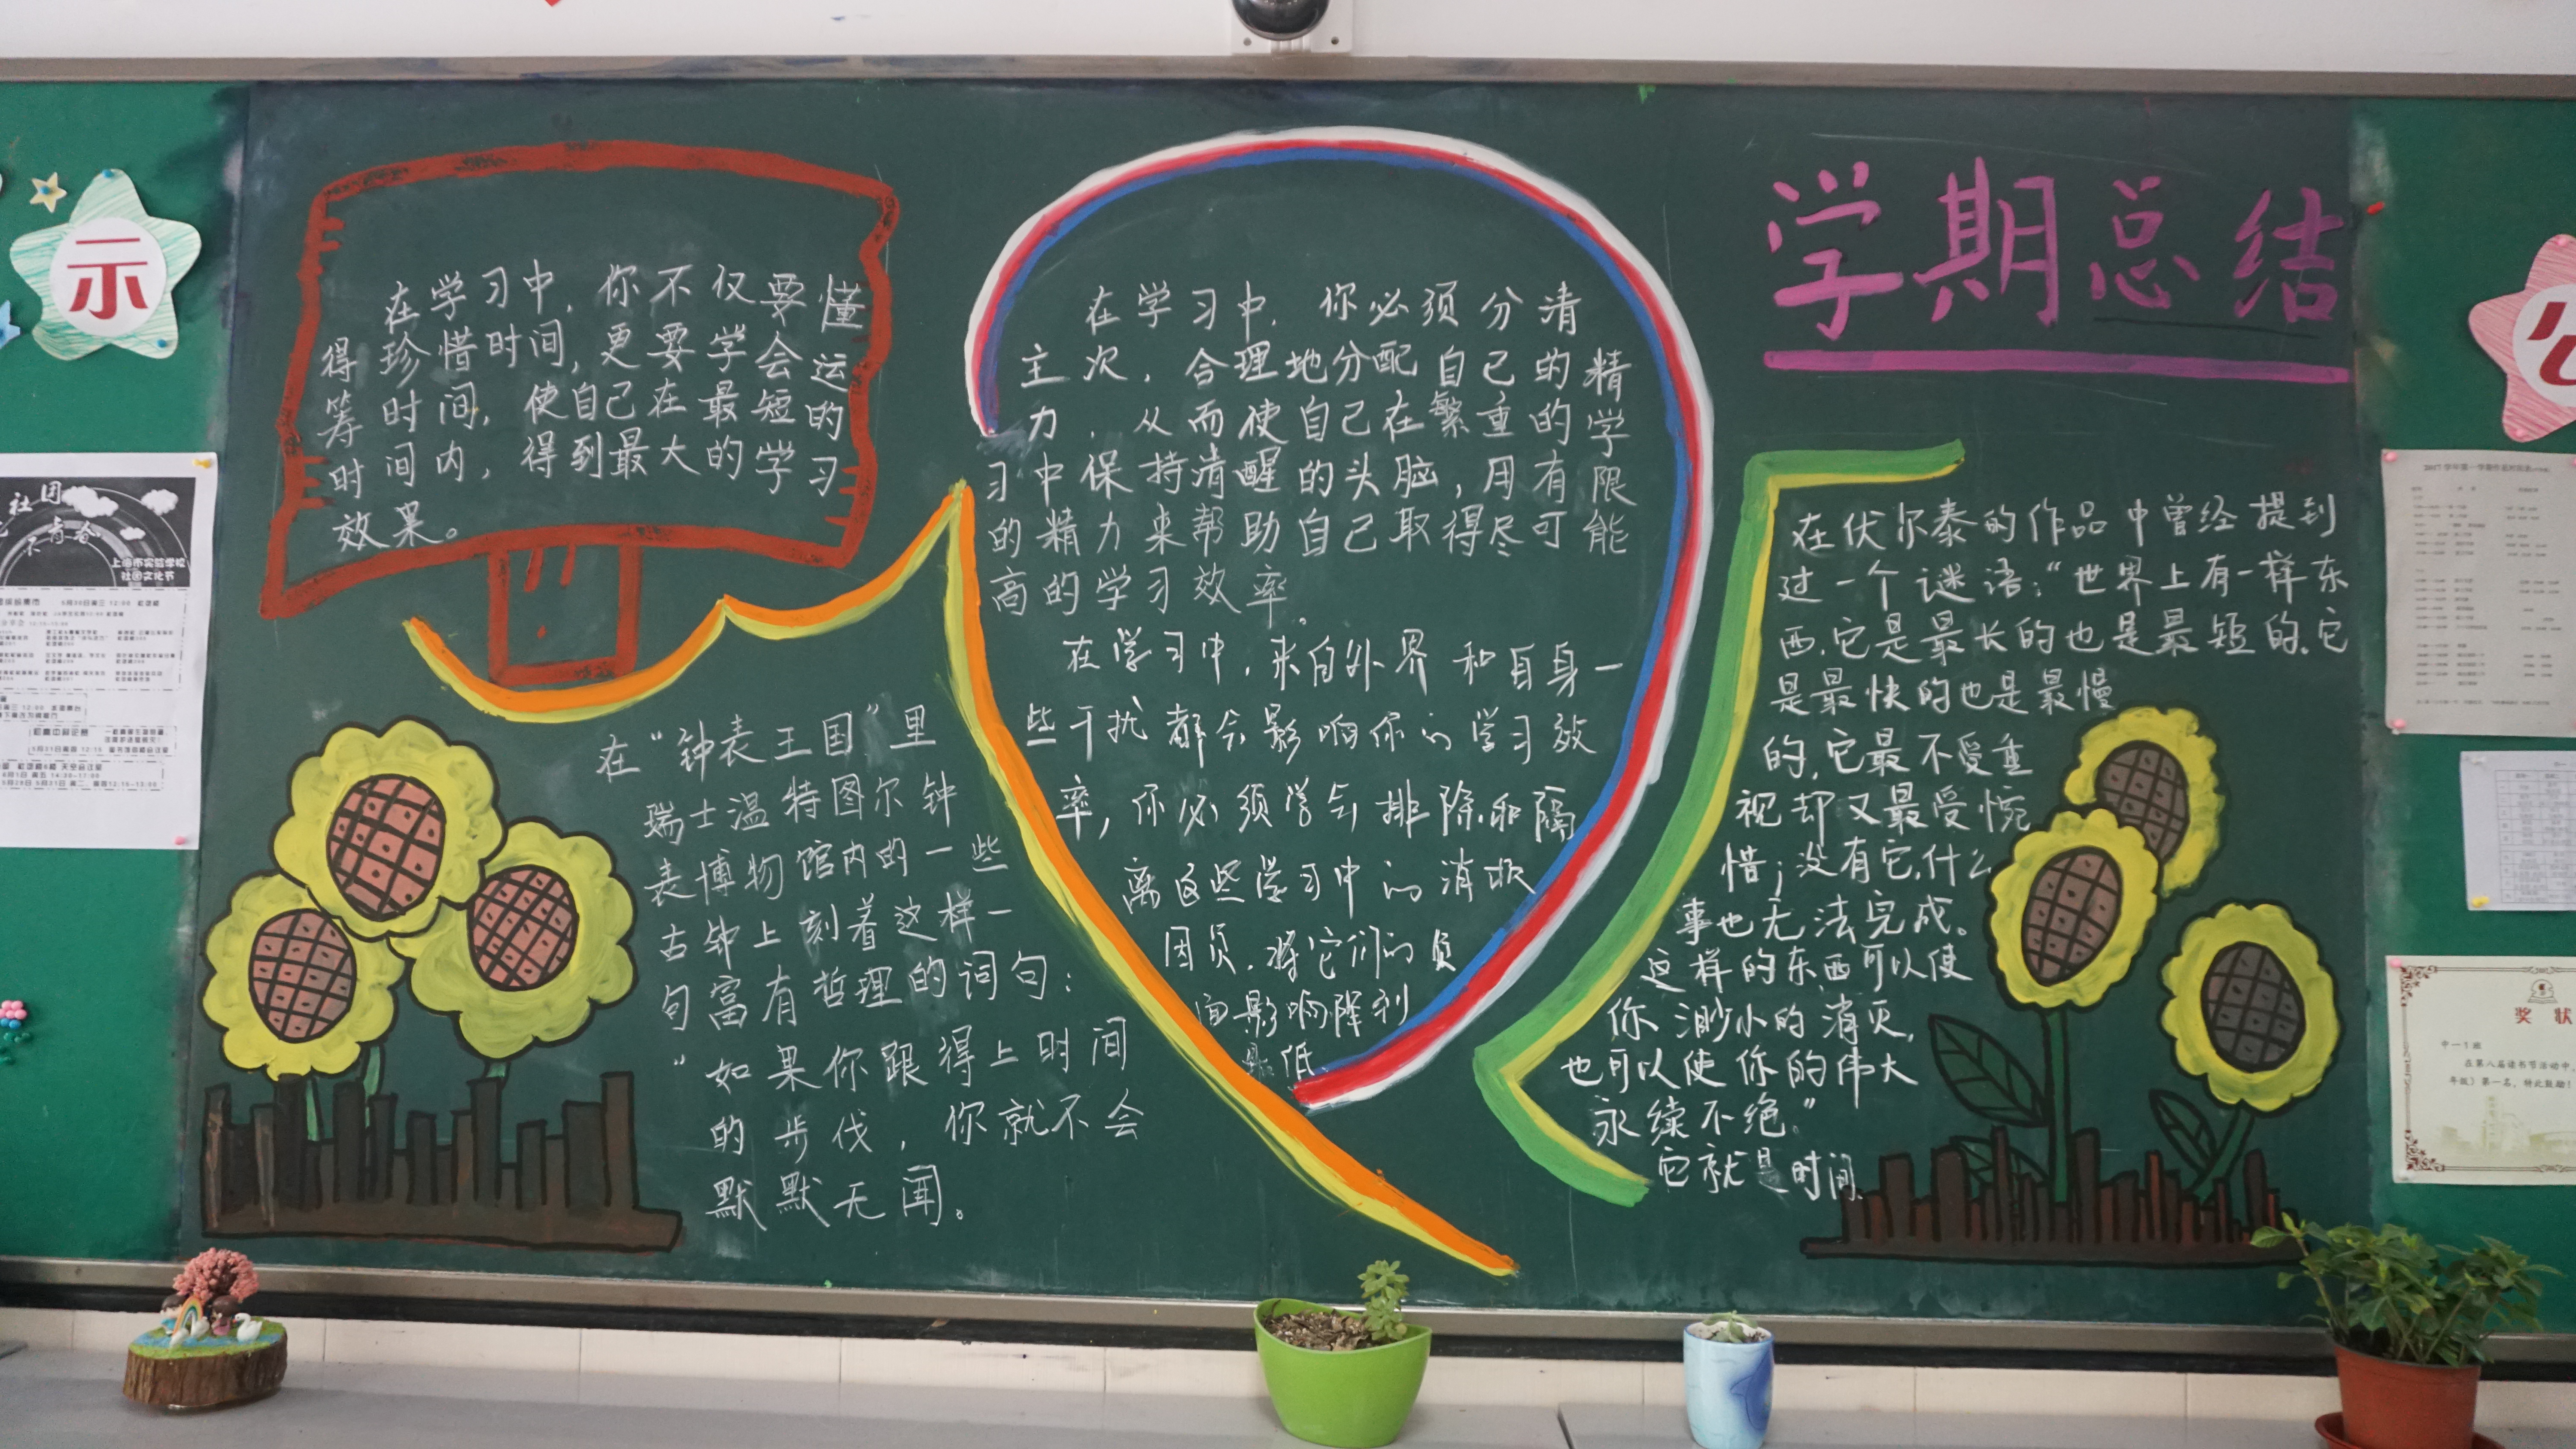 示
学期总结
在学习中，你不仅要懂
得珍惜时间，更要学会运
筹时间，使自己在最短的
时间内，得到最大的学习
效果。
在“钟表王国”里
瑞士温特图尔钟
表博物馆内的一些
古钟上刻着这样一
句富有哲理的词句：
“如果你跟得上时间
的步伐，你就不会
默默无闻。
在学习中，你必须分清
主次，合理地分配自己的精
力，从而使自己在繁重的学
习中保持清醒的头脑，用有限
的精力来帮助自己取得尽可能
高的学习效率。
在学习中，来自外界和自身一
些干扰都会影响你的学习效
率，你必须学会排除和隔
离这些学习中的消极
因员，将它们的负
面影响降到
最低
在伏尔泰的作品中曾经提到
过一个谜语：“世界上有一样东
西，它是最长的也是最短的，它
是最快的也是最慢
的，它最不受重
视却又最受惋
惜；没有它，什么
事也无法完成。
这样的东西可以使
你渺小的消灭，
也可以使你的伟大
永续不绝。”
它就是时间。
社团
青春
上海市实验学校
社团文化节
2017学年第一学期
奖状
中一1班
在第八届读书节活动中，
年级）第一名，特此鼓励！